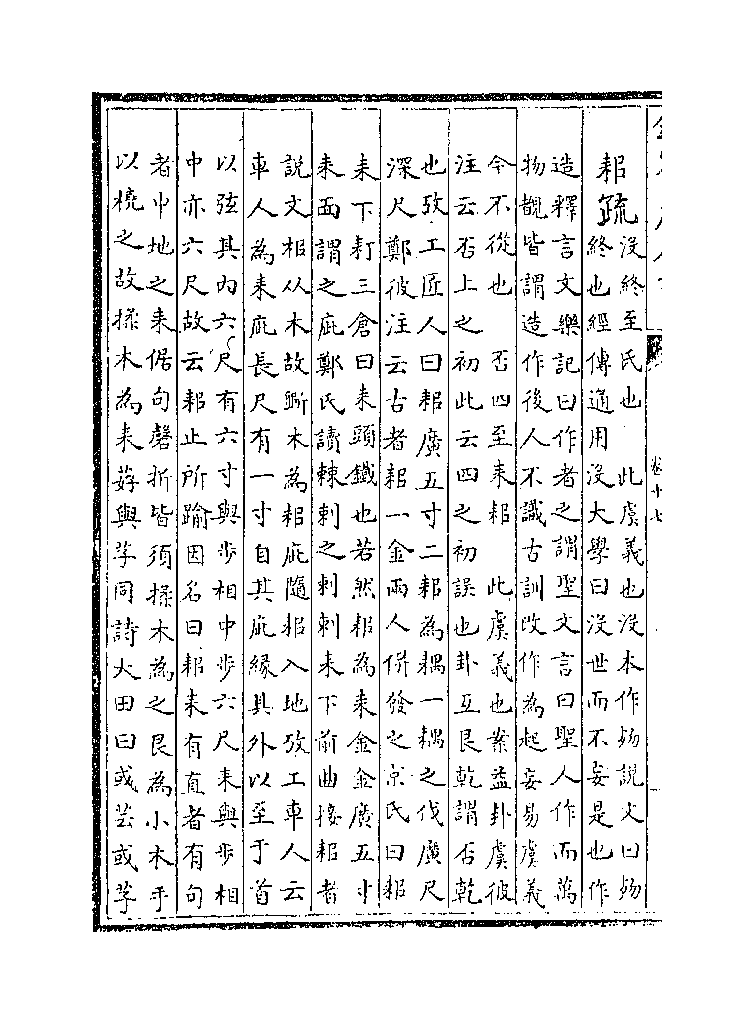 卷十七
耜疏
没終至氏也　此虞義也没本作歾說文曰歾
終也經傳通用没大學曰没世而不妄是也作
造釋言文樂記曰作者之謂聖文言曰聖人作而萬
物覩皆謂造作後人不識古訓改作為起妄易虞義
今不從也　否四至耒耜　此虞義也案益卦虞彼
注云否上之初此云四之初誤也卦互艮乾謂否乾
也攷工匠人曰耜廣五寸二耜為耦一耦之伐廣尺
深尺鄭彼注云古者耜一金兩人併發之京氏曰耜
耒下耓三倉曰耒頭鐵也若然耜為耒金金廣五寸
耒面謂之庛鄭氏讀棘刺之刺刺耒下前曲接耜者
説文耜从木故斲木為耜庛隨耜入地攷工車人云
車人為耒庛長尺有一寸自其庛緣其外以至于首
以弦其内六尺有六寸與步相中步六尺耒與步相
中亦六尺故云耜止所踰因名曰耜耒有直者有句
者中地之耒倨句磬折皆須揉木為之艮為小木手
以橈之故揉木為耒薅與芓同詩大田曰或芸或芓